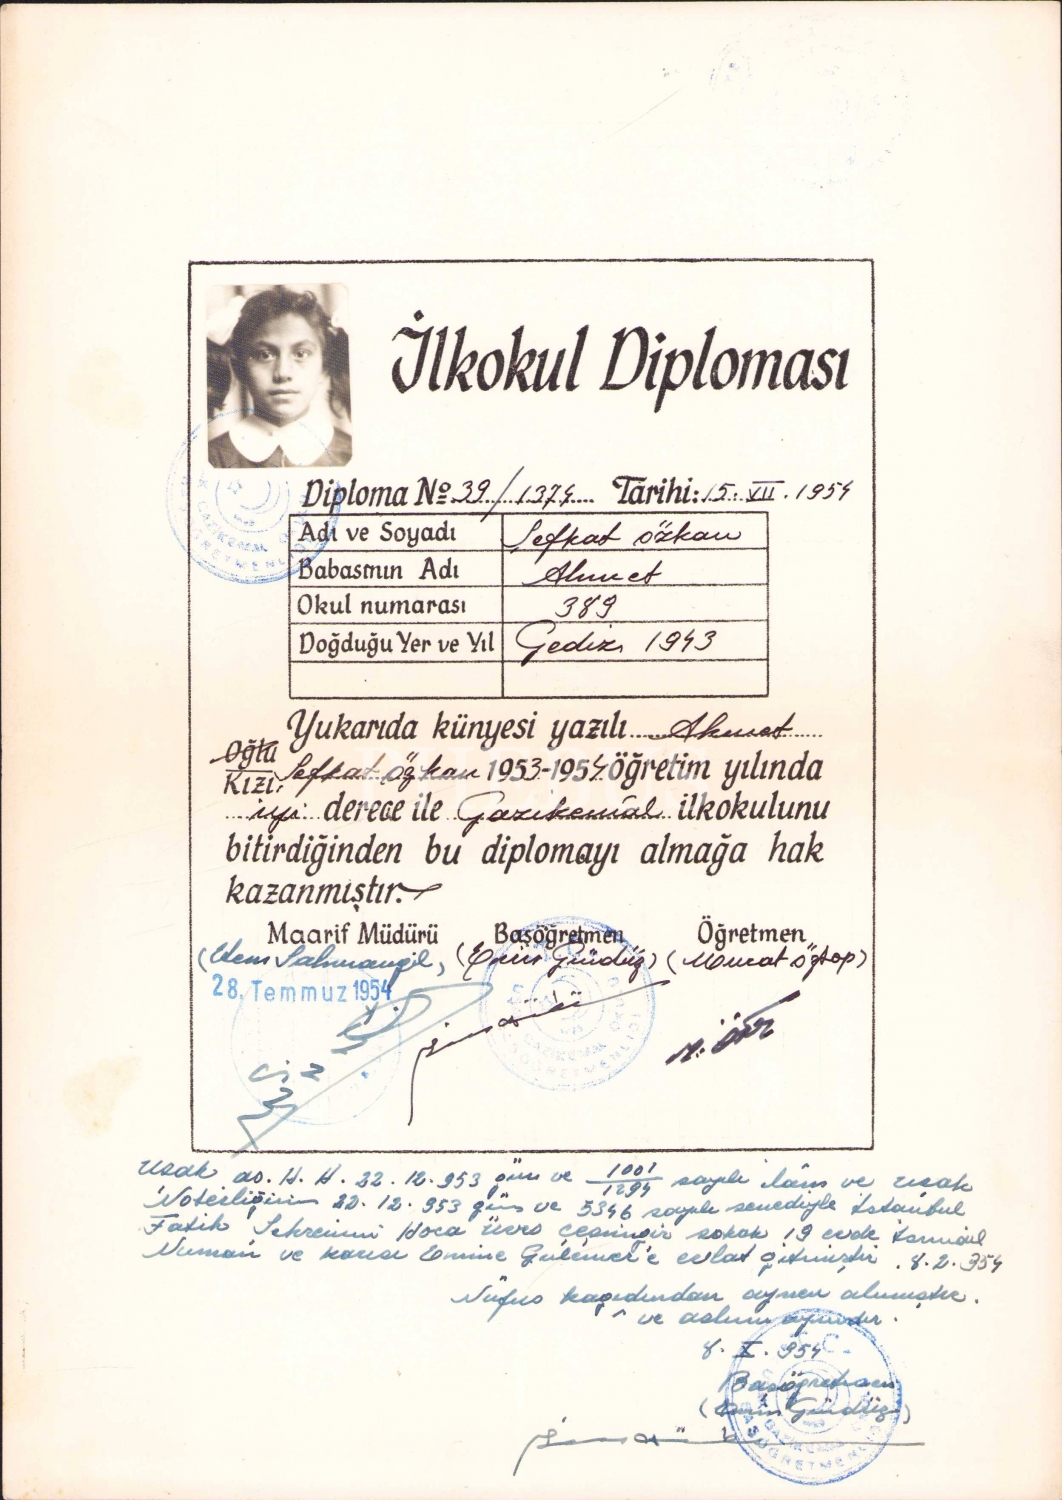 İlkokul Diploması
Diploma № 39/1374 Tarihi: 15. VII. 1954
Adı ve Soyadı Şefkat Özkan
Babasının Adı Ahmet
Okul numarası 389
Doğduğu Yer ve Yıl Gediz 1943
Yukarıda künyesi yazılı Ahmet
Oğlu
Kızı: Şefkat Özkan 1953-1954 öğretim yılında
iyi derece ile Gazikemâl ilkokulunu
bitirdiğinden bu diplomayı almağa hak
kazanmıştır.
Maarif Müdürü Başöğretmen Öğretmen
(Emin Gündüz) (Murat Öztop)
28. Temmuz 1954
M. Özt
Uşak as. H. H. 22.12.953 gün ve 1001/1294 sayılı ilâm ve Uşak
Noterliğinin 22.12.953 gün ve 5346 sayılı senediyle İstanbul
Fatih Hoca Üveys sokak 19 evde İsmail
Numan ve karısı Emine Gülemer'e evlat gitmiştir. 8.2.954
Nüfus kağıdından aynen alınmıştır.
ve aslının aynıdır.
8. X. 954
Başöğretmen
(Emin Gündüz)
T.C.
GAZİKEMAL
BAŞÖĞRETMENLİĞİ